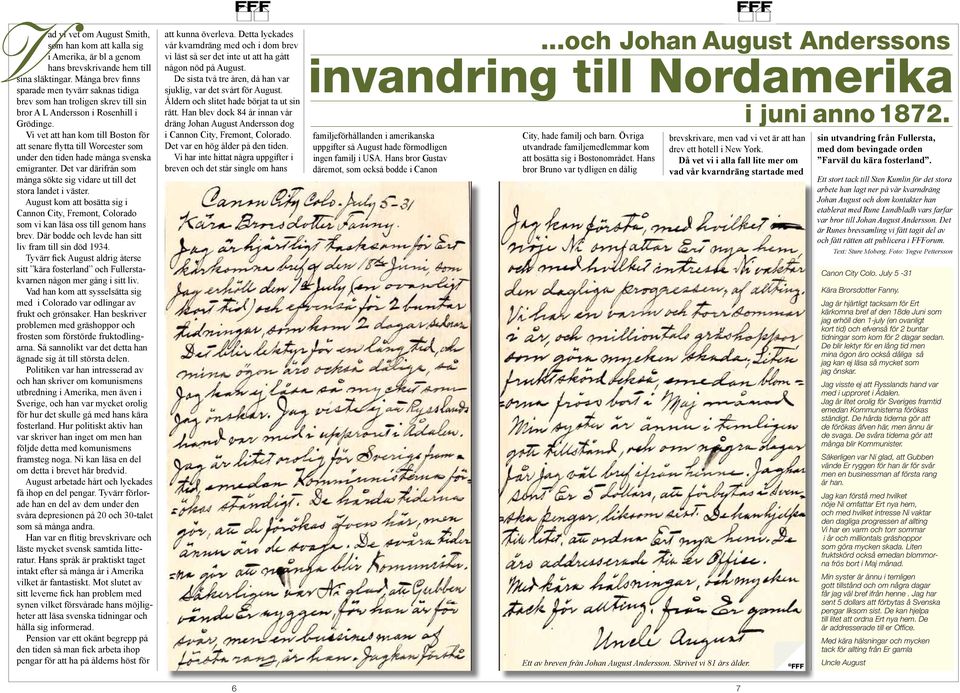 FFF
Vad vi vet om August Smith,
som han kom att kalla sig
i Amerika, är bl a genom
hans brevskrivande hem till
sina släktingar. Många brev finns
sparade men tyvärr saknas tidiga
brev som han troligen skrev till sin
bror A L Andersson i Rosenhill i
Grödinge.
Vi vet att han kom till Boston för
att senare flytta till Worcester som
under den tiden hade många svenska
emigranter. Det var därifrån som
många sökte sig vidare ut till det
stora landet i väster.
August kom att bosätta sig i
Cannon City, Fremont, Colorado
som vi kan läsa oss till genom hans
brev. Där bodde och levde han sitt
liv fram till sin död 1934.
Tyvärr fick August aldrig återse
sitt ”kära fosterland” och Fullersta-
kvarnen någon mer gång i sitt liv.
Vad han kom att sysselsätta sig
med i Colorado var odlingar av
frukt och grönsaker. Han beskriver
problemen med gräshoppor och
frosten som förstörde fruktodling-
arna. Så sannolikt var det detta han
ägnade sig åt till största delen.
Politiken var han intresserad av
och han skriver om komunismens
utbredning i Amerika, men även i
Sverige, och han var mycket orolig
för hur det skulle gå med hans kära
fosterland. Hur politiskt aktiv han
var skriver han inget om men han
följde detta med komunismens
framsteg noga. Ni kan läsa en del
om detta i brevet här bredvid.
August arbetade hårt och lyckades
få ihop en del pengar. Tyvärr förlor-
ade han en del av dem under den
svåra depresionen på 20 och 30-talet
som så många andra.
Han var en flitig brevskrivare och
läste mycket svensk samtida litte-
ratur. Hans språk är praktiskt taget
intakt efter så många år i Amerika
vilket är fantastiskt. Mot slutet av
sitt leverne fick han problem med
synen vilket försvårade hans möjlig-
heter att läsa svenska tidningar och
hålla sig informerad.
Pension var ett okänt begrepp på
den tiden så man fick arbeta ihop
pengar för att ha på ålderns höst för
att kunna överleva. Detta lyckades
vår kvarndräng med och i dom brev
vi läst så ser det inte ut att ha gått
någon nöd på August.
De sista två tre åren, då han var
sjuklig, var det svårt för August.
Åldern och slitet hade börjat ta ut sin
rätt. Han blev dock 84 år innan vår
dräng Johan August Andersson dog
i Cannon City, Fremont, Colorado.
Det var en hög ålder på den tiden.
Vi har inte hittat några uppgifter i
breven och det står single om hans
FFF
...och Johan August Anderssons
invandring till Nordamerika
i juni anno 1872.
familjeförhållanden i amerikanska
uppgifter så August hade förmodligen
ingen familj i USA. Hans bror Gustav
däremot, som också bodde i Canon
City, hade familj och barn. Övriga
utvandrade familjemedlemmar kom
att bosätta sig i Bostonområdet. Hans
bror Bruno var tydligen en dålig
brevskrivare, men vad vi vet är att han
drev ett hotell i New York.
Då vet vi i alla fall lite mer om
vad vår kvarndräng startade med
sin utvandring från Fullersta,
med dom bevingade orden
”Farväl du kära fosterland”.
Ett stort tack till Sten Kumlin för det stora
arbete han lagt ner på vår kvarndräng
Johan August och dom kontakter han
etablerat med Rune Lundbladh vars farfar
var bror till Johan August Andersson. Det
är Runes brevsamling vi fått tagit del av
och fått rätten att publicera i FFForum.
Text: Sture Moberg. Foto: Yngve Pettersson
Canon City Colo. July 5-31
Kära Brorsdotter Fanny.
Jag är hjärtligt tacksam för Ert
kärkomna bref af den 18de Juni, som
jag erhöll den 1st July (en ovanligt
kort tid) och efvenså för 2 buntar
tidningar, som kom 2 dagar sednar.
Det blir lektyr för en lång tid, och
mina ögon äro också dåliga, så
jag kan ej läsa så mycket som
jag önskar. Jag visste ej att Rysslands
hand var med i upproret i Ådalen.
Jag är litet orolig för Sveriges fram-
tid emedan Kommunisterna för-
ökas ständigt. De hårda tiderna
gör att de förökas äfven här, men
ännu äro de svaga. De svåra tider-
na gör att många blir Kommunister.
Säkerligen var Ni glad, att Gubben
Vände Er ryggen, för han är för
svår, men en buisinesman af
första rang, är han.
Jag kan förstå, med hvilket
nöje Ni omfattar Ert nya hem,
och med hvilket intresse Ni vaktar
den dagliga progressen, af allting.
Vi har en varm och torr Sommar
i år och milliontals gräshoppor
som göra mycken skada. Liten
fruktskörd också, emedan blom-
orna frös bort i Maj månad.
Min syster är ännu i temligen
gott tillstånd och om några dagar
får jag väl bref ifrån henne. Jag har
sent Er 5 dollars, att förbytas å Sven-
ska pengar, liksom sist. De kan hjelpa
till litet, att ordna Ert nya hem. De
är addresserade till Er Office.
Med kära hälsningar och mycken
tack för allting från Er gamla
Uncle August
Ett av breven från Johan August Andersson. Skrivet vi 81 års ålder.
Canon City Colo. July 5 -31
Kära Brorsdotter Fanny.
Jag är hjärtligt tacksam för Ert
kärkomna bref af den 18de Juni som
jag erhöll den 1-july (en ovanligt
kort tid) och efvenså för 2 buntar
tidningar som kom för 2 dagar sedan.
De blir lektyr för en lång tid men
mina ögon äro också dåliga så
jag kan ej läsa så mycket som
jag önskar.
Jag visste ej att Rysslands hand var
med i upproret i Ådalen.
Jag är litet orolig för Sveriges framtid
emedan Kommunisterna förökas
ständigt. De hårda tiderna gör att
de förökas äfven här, men ännu är
de svaga. De svåra tiderna gör att
många blir Kommunister.
Säkerligen var Ni glad, att Gubben
vände Er ryggen för han är för svår
men en businessman af första rang
är han.
Jag kan förstå med hvilket
nöje Ni omfattar Ert nya hem,
och med hvilket intresse Ni vaktar
den dagliga progressen af allting
Vi har en varm och torr sommar
i år och milliontals gräshoppor
som göra mycken skada. Liten
fruktskörd också emedan blommor-
na frös bort i Maj månad.
Min syster är ännu i temligen
gott tillstånd och om några dagar
får jag väl bref ifrån henne . Jag har
sent 5 dollars att förbytas å Svenska
pengar liksom sist. De kan hjelpa
till litet att ordna Ert nya hem. De
är addresserade till er Office.
Med kära hälsningar och mycken
tack för allting från Er gamla
Uncle August
©FFF
6
7